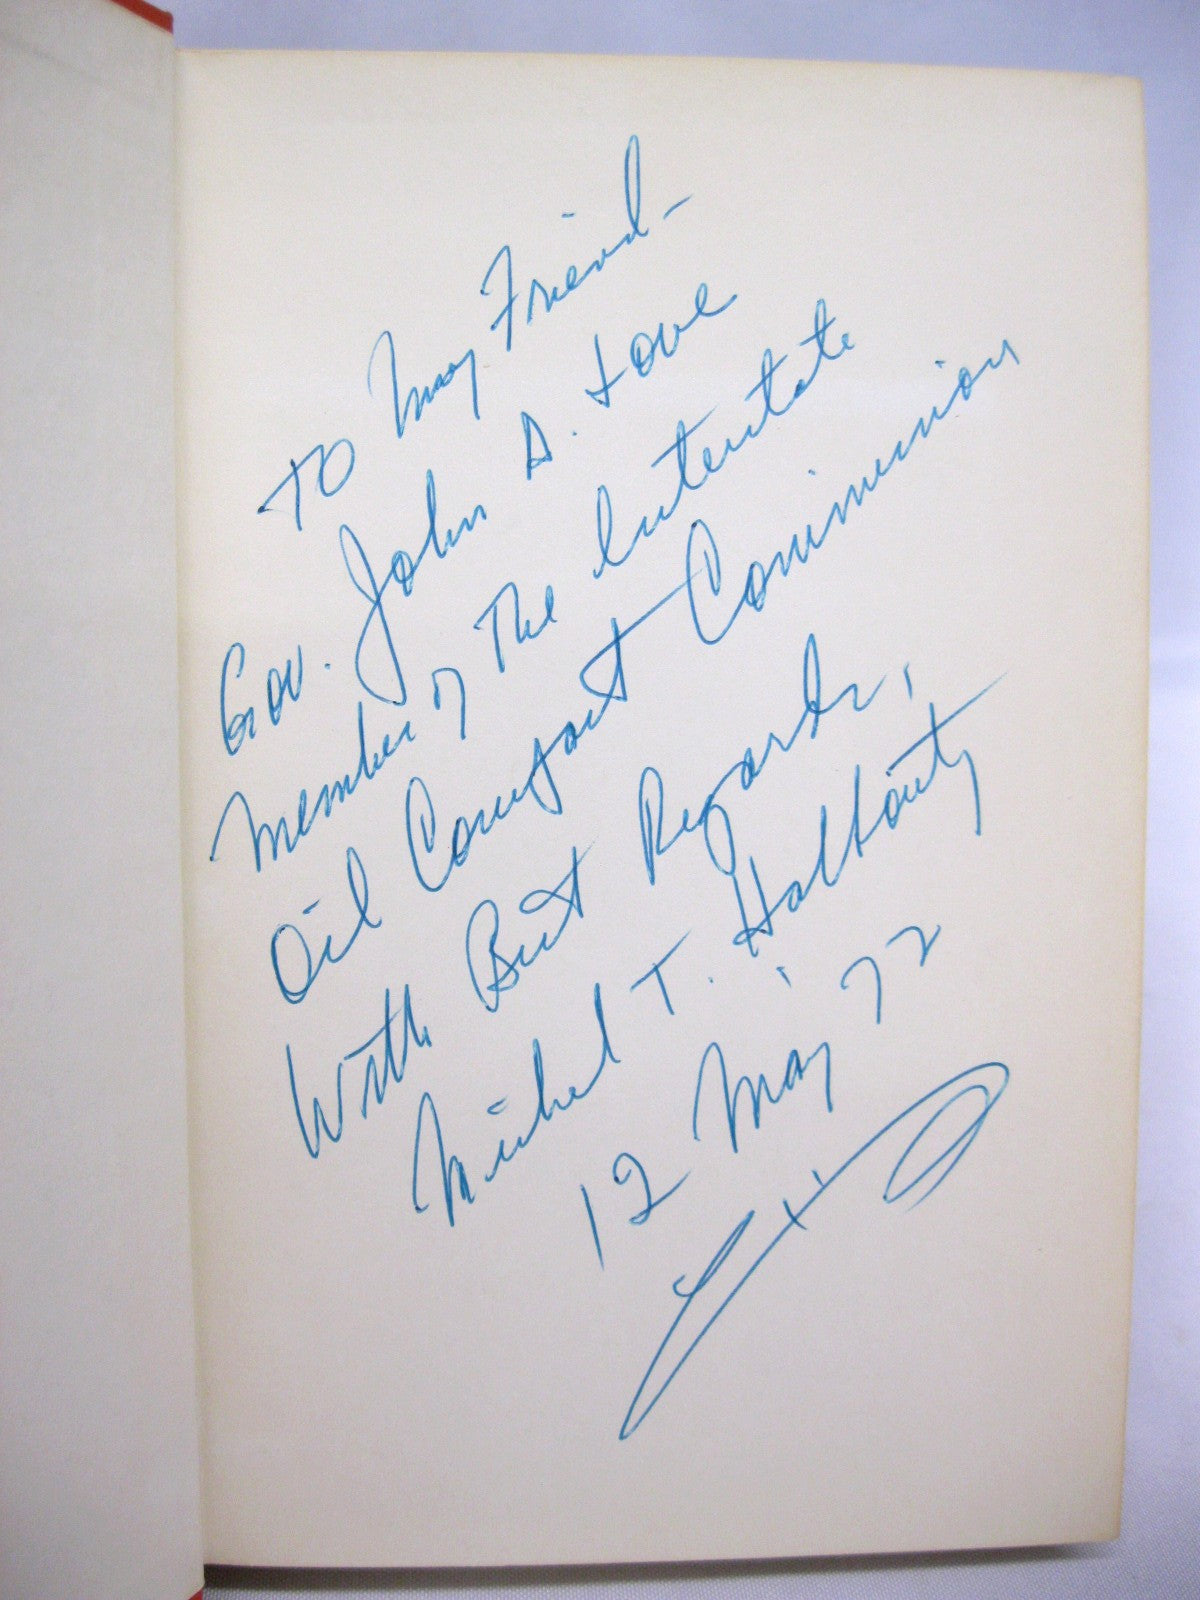 To My Friend-
Gov. John A. Love
Member of The Interstate
Oil Compact Commission
With Best Regards,
Michel T. Halbouty
12 May '72